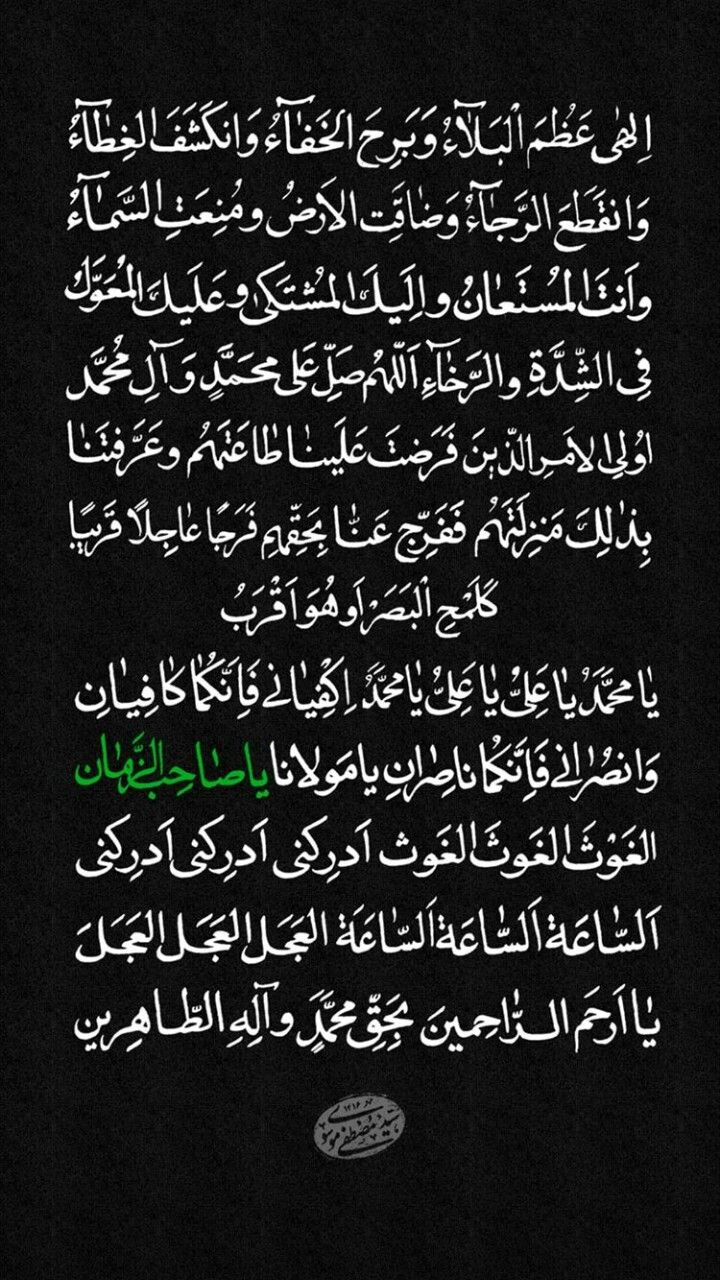 اِلٰهى عَظُمَ الْبَلآءُ وَبَرِحَ الخَفآءُ وَانكَشَفَ الغِطآءُ
وَانقَطَعَ الرَّجآءُ وَضاقَتِ الاَرضُ ومُنِعَتِ السَّمآءُ
واَنتَ المُستَعانُ واِلَيكَ المُشتَكىٰ وعَلَيكَ المُعَوَّلُ
فِى الشِّدَّةِ والرَّخآءِ اَللّهُم صَلِّ عَلى محمَدٍ وَآلِ مُحَمَّد
اوُلِى الاَمرِ الَّذينَ فَرَضتَ عَلَينا طاعَتَهُم وعَرَّفتَنا
بِذٰلِكَ مَنزِلَتَهُم فَفَرِّج عَنّا بِحَقِّهِم فَرَجًا عاجِلًا قَريبًا
كَلَمْحِ الْبَصَرْ اَو هُوَ اَقْرَبُ
يا محمَّدُ يا عَلِىُّ يا عَلِىُّ يا محمَّدُ اِكْفِيانى فَاِنَّكُما كافِيانِ
وَانصُرانى فَاِنَّكُما ناصِرانِ يا مَولانا يا صاحِبَ الزَّمان
الغَوْثَ الغَوثَ الغَوث اَدرِكنى اَدرِكنى اَدرِكنى
اَلسّاعَة اَلسّاعَة اَلسّاعَة العَجَل العَجَل العَجَلَ
يا اَرحَم الرّاحِمينَ بِحَقِّ محَمَّدٍ وآلِهِ الطّاهِرين
سيد مصطفى موسوى ١٤١٦